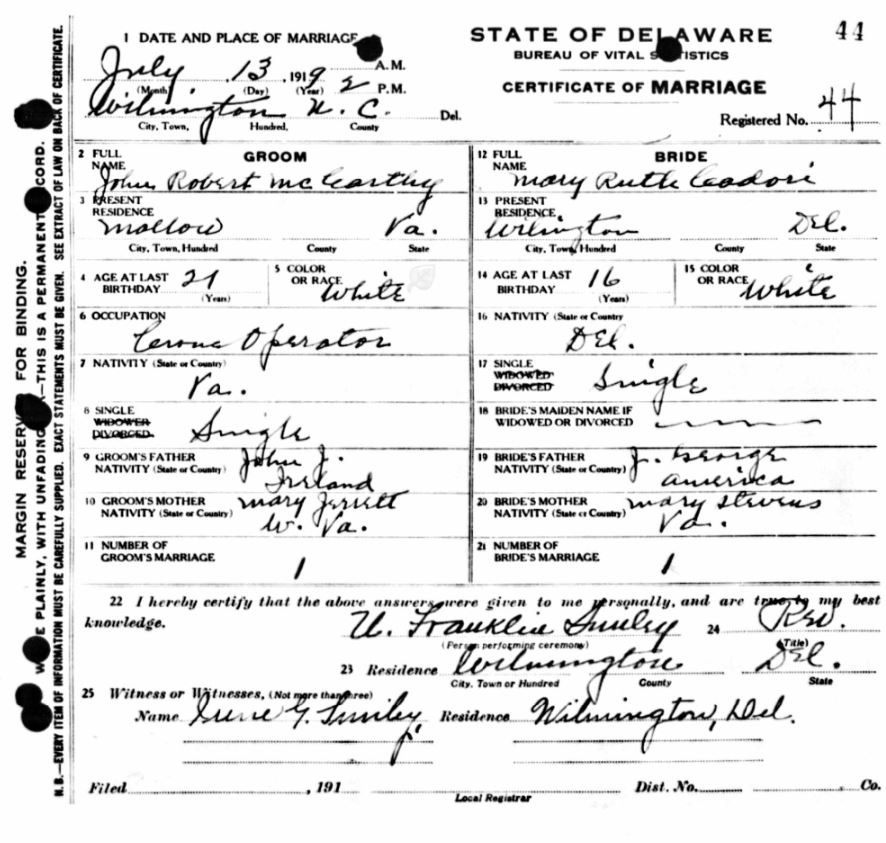 1 DATE AND PLACE OF MARRIAGE
STATE OF DELAWARE
44
BUREAU OF VITAL STATISTICS
July 13, 1919, 2 A.M. P.M.
(Month) (Day) (Year)
CERTIFICATE OF MARRIAGE
Wilmington N. C. Del.
City, Town, Hundred, County
Registered No. 44
2 FULL NAME GROOM
John Robert McCarthy
12 FULL NAME BRIDE
Mary Ruth
3 PRESENT RESIDENCE
Mallow Va.
City, Town, Hundred County State
13 PRESENT RESIDENCE
Wilmington Del.
City, Town, Hundred County State
4 AGE AT LAST BIRTHDAY 21 (Years)
5 COLOR OR RACE White
14 AGE AT LAST BIRTHDAY 16 (Years)
15 COLOR OR RACE White
6 OCCUPATION
Operator
16 NATIVITY (State or Country
Del.
7 NATIVITY (State or Country)
Va.
17 SINGLE WIDOWED DIVORCED Single
8 SINGLE WIDOWER DIVORCED. Single
18 BRIDE'S MAIDEN NAME IF WIDOWED OR DIVORCED
9 GROOM'S FATHER John J.
NATIVITY (State or Country) Ireland
19 BRIDE'S FATHER J. George
NATIVITY (State or Country) America
10 GROOM'S MOTHER Mary
NATIVITY (State or Country) W. Va.
20 BRIDE'S MOTHER Mary Stevens
NATIVITY (State or Country) Va.
11 NUMBER OF GROOM'S MARRIAGE 1
21 NUMBER OF BRIDE'S MARRIAGE 1
22 I hereby certify that the above answers were given to me personally, and are true to my best
knowledge.
U. Franklin Smiley 24 Rev.
(Person performing ceremony) (Title)
23 Residence Wilmington Del.
City, Town or Hundred County State
25 Witness or Witnesses, (Not more than three)
Name Irene G. Smiley, Residence Wilmington, Del.
Filed , 191 Dist. No. Co.
Local Registrar
MARGIN RESERVED FOR BINDING.
WRITE PLAINLY, WITH UNFADING —THIS IS A PERMANENT RECORD.
N. B.—EVERY ITEM OF INFORMATION MUST BE CAREFULLY SUPPLIED. EXACT STATEMENTS MUST BE GIVEN. SEE EXTRACT OF LAW ON BACK OF CERTIFICATE.